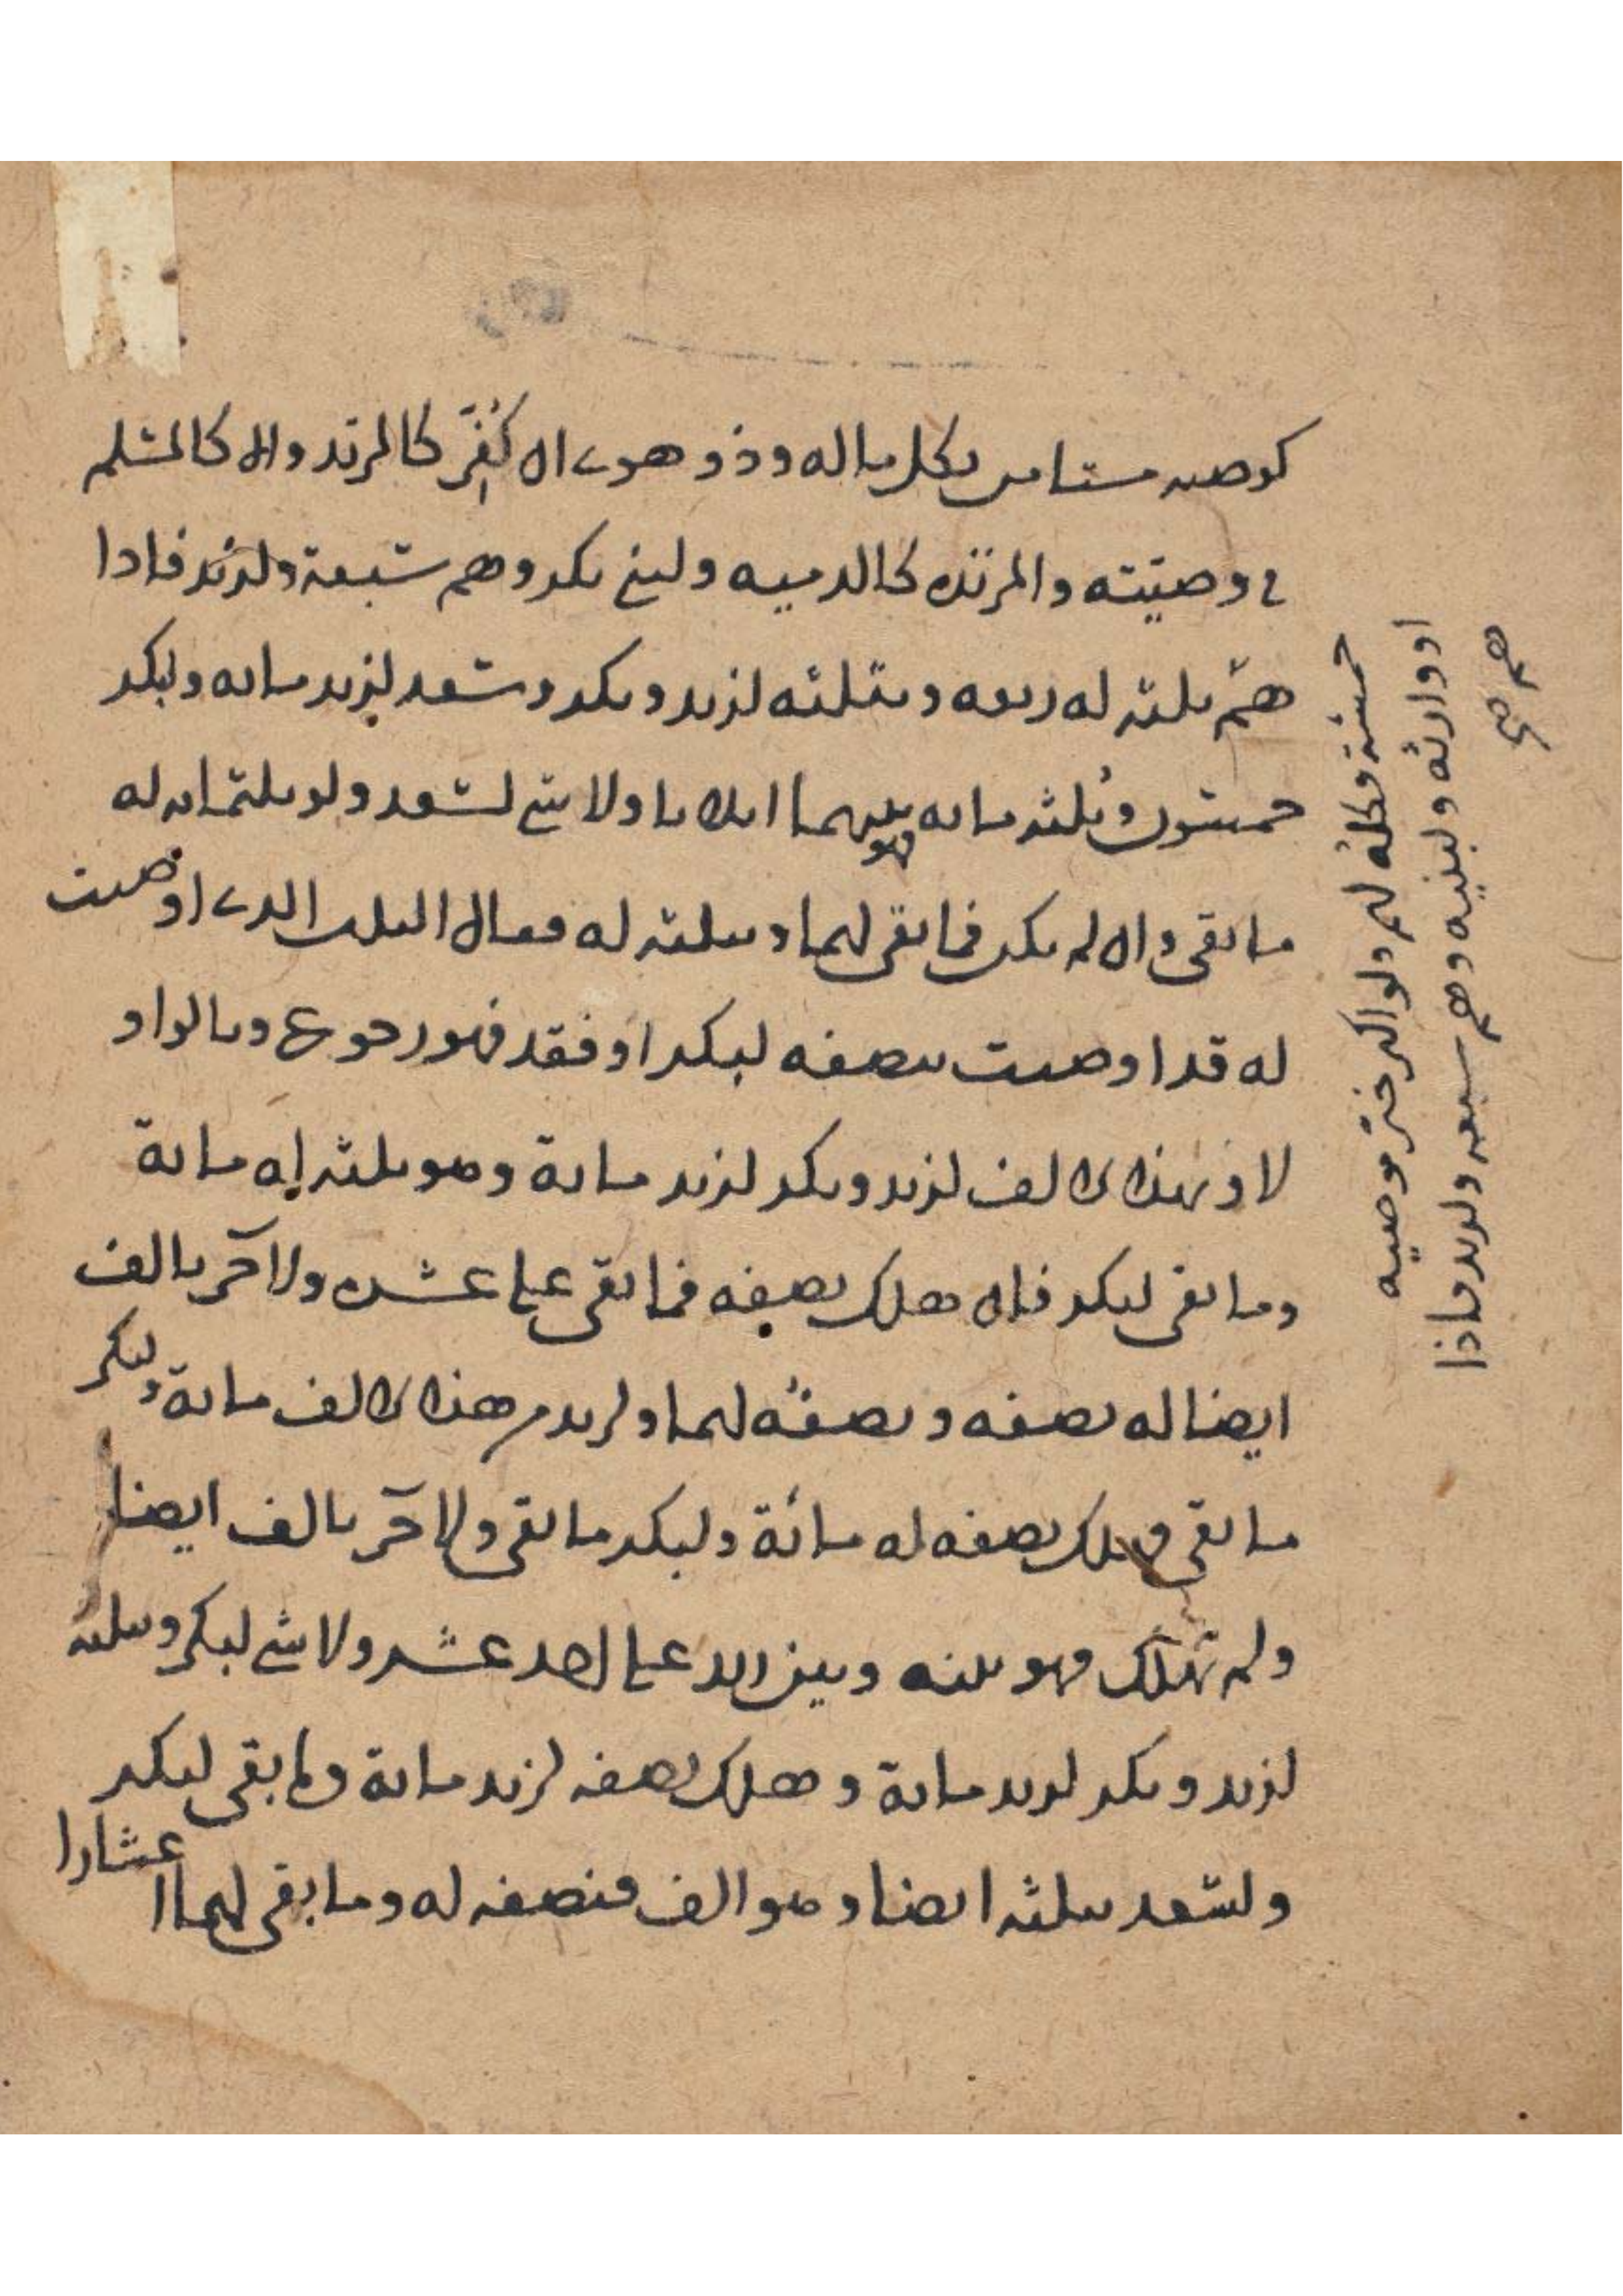 كوصيه مستامن بكل ماله وذو هوى ان كُفِّر كالمرتد والا كالمسلم
في وصيّته والمرتدة كالذميه ولبني بكر وهم سبعة ولزيد فاذا
هم ثلثه له ربعه وبثلثه لزيد وبكر وسعد لزيد مايه ولبكر
خمسون وثلثه مايه فهو بينهما اثلاثا ولا شي لسعد ولو بثلثمايه له
ما بقي وان لم يكن فما بقي لهما وبثلثه له فقال الثلث الذي اوصيت
له قد اوصيت بنصفه لبكر او فقد فهو رجوع وبالواو
لا وبهذا الالف لزيد وبكر لزيد ماية وهو ثلثه له ماية
وما بقي لبكر فان هلك نصفه فما بقي على عشره ولآخر بالف
ايضا له نصفه ونصفه لهما ولزيد من هذا الالف ماية ولبكر
ما بقي فهلك نصفه له مائة ولبكر ما بقي ولآخر بالف ايضا
ولم تهلك فهو بينه وبين زيد على احد عشر ولا شي لبكر وبثلثه
لزيد وبكر لزيد ماية وهلك نصفه لزيد ماية وما بقي لبكر
ولسعد بثلثه ايضا وهو الف فنصفه له وما بقي لهما اعشارا
خمسة فكله لهم ولو اكثر خير موصيه
او وارثه ولبنيه وهم سبعه ولزيد فاذا
هم صح